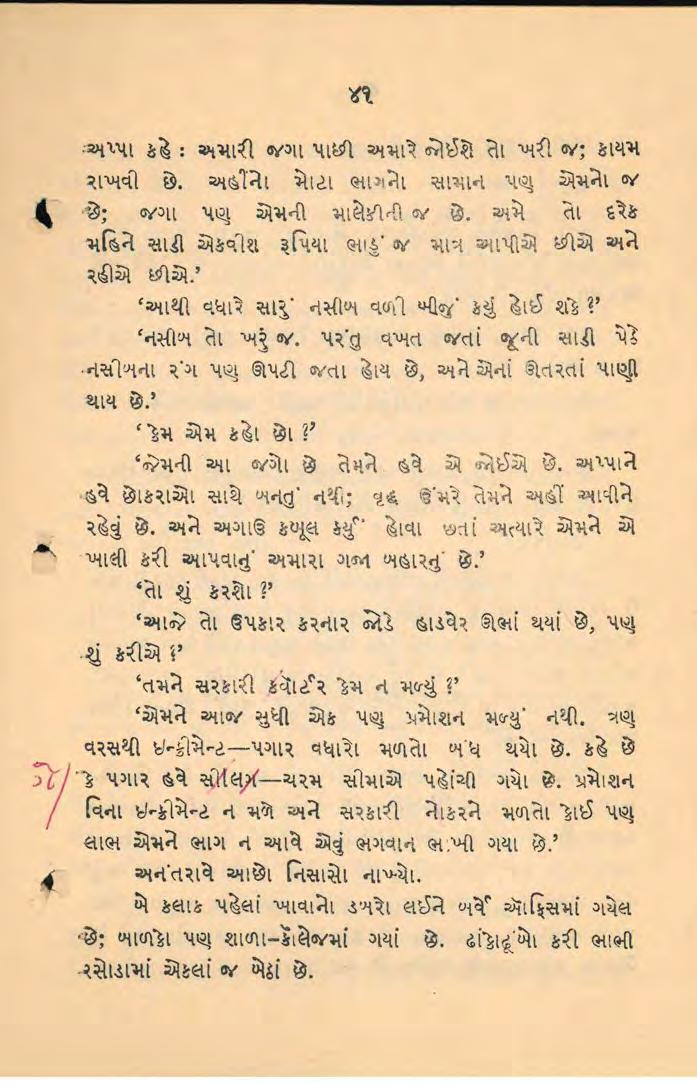 ૪૧
અપ્પા કહે : અમારી જગા પાછી અમારે જોઈશે તો ખરી જ; કાયમ
રાખવી છે. અહીંનો મોટા ભાગનો સામાન પણ એમનો જ
છે; જગા પણ એમની માલેકીની જ છે. અમે તો દરેક
મહિને સાડી એકવીશ રૂપિયા ભાડું જ માત્ર આપીએ છીએ અને
રહીએ છીએ.’
‘આથી વધારે સારું નસીબ વળી બીજું કયું હોઈ શકે ?’
‘નસીબ તો ખરું જ. પરંતુ વખત જતાં જૂની સાડી પેઠે
નસીબના રંગ પણ ઊપટી જતા હોય છે, અને એનાં ઊતરતાં પાણી
થાય છે.’
‘કેમ એમ કહો છો ?’
‘જેમની આ જગો છે તેમને હવે એ જોઈએ છે. અપ્પાને
હવે છોકરાઓ સાથે બનતું નથી; વૃદ્ધ ઉંમરે તેમને અહીં આવીને
રહેવું છે. અને અગાઉ કબૂલ કર્યું હોવા છતાં અત્યારે એમને એ
ખાલી કરી આપવાનું અમારા ગજા બહારનું છે.’
‘તો શું કરશો ?’
‘આજે તો ઉપકાર કરનાર જોડે હાડવેર ઊભાં થયાં છે, પણ
શું કરીએ ?’
‘તમને સરકારી ક્વૉર્ટર કેમ ન મળ્યું ?’
‘એમને આજ સુધી એક પણ પ્રમોશન મળ્યું નથી. ત્રણ
વરસથી ઇન્ક્રીમેન્ટ—પગાર વધારો મળતો બંધ થયો છે. કહે છે
કે પગાર હવે સીલિંગ—ચરમ સીમાએ પહોંચી ગયો છે. પ્રમોશન
વિના ઇન્ક્રીમેન્ટ ન મળે અને સરકારી નોકરને મળતો કોઈ પણ
લાભ એમને ભાગ ન આવે એવું ભગવાન ભાખી ગયા છે.’
અનંતરાવે આછો નિસાસો નાખ્યો.
બે કલાક પહેલાં ખાવાનો ડબરો લઈને બર્વે ઑફિસમાં ગયેલ
છે; બાળકો પણ શાળા–કૉલેજમાં ગયાં છે. ઢાંકોઢૂંબો કરી ભાભી
રસોડામાં એકલાં જ બેઠાં છે.